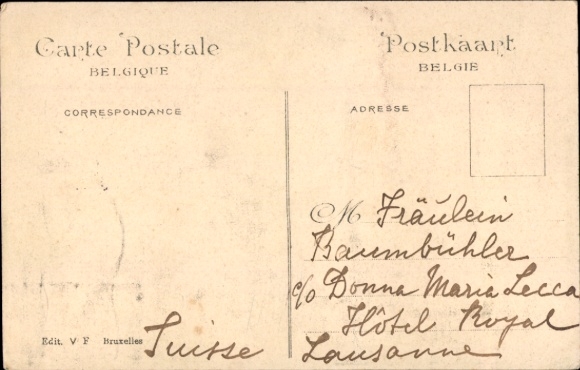 Carte Postale
BELGIQUE
Postkaart
BELGIE
CORRESPONDANCE
ADRESSE
M Fräulein
Baumbühler
c/o Donna Maria Lecca
Hôtel Royal
Lausanne
Suisse
Edit. V F Bruxelles